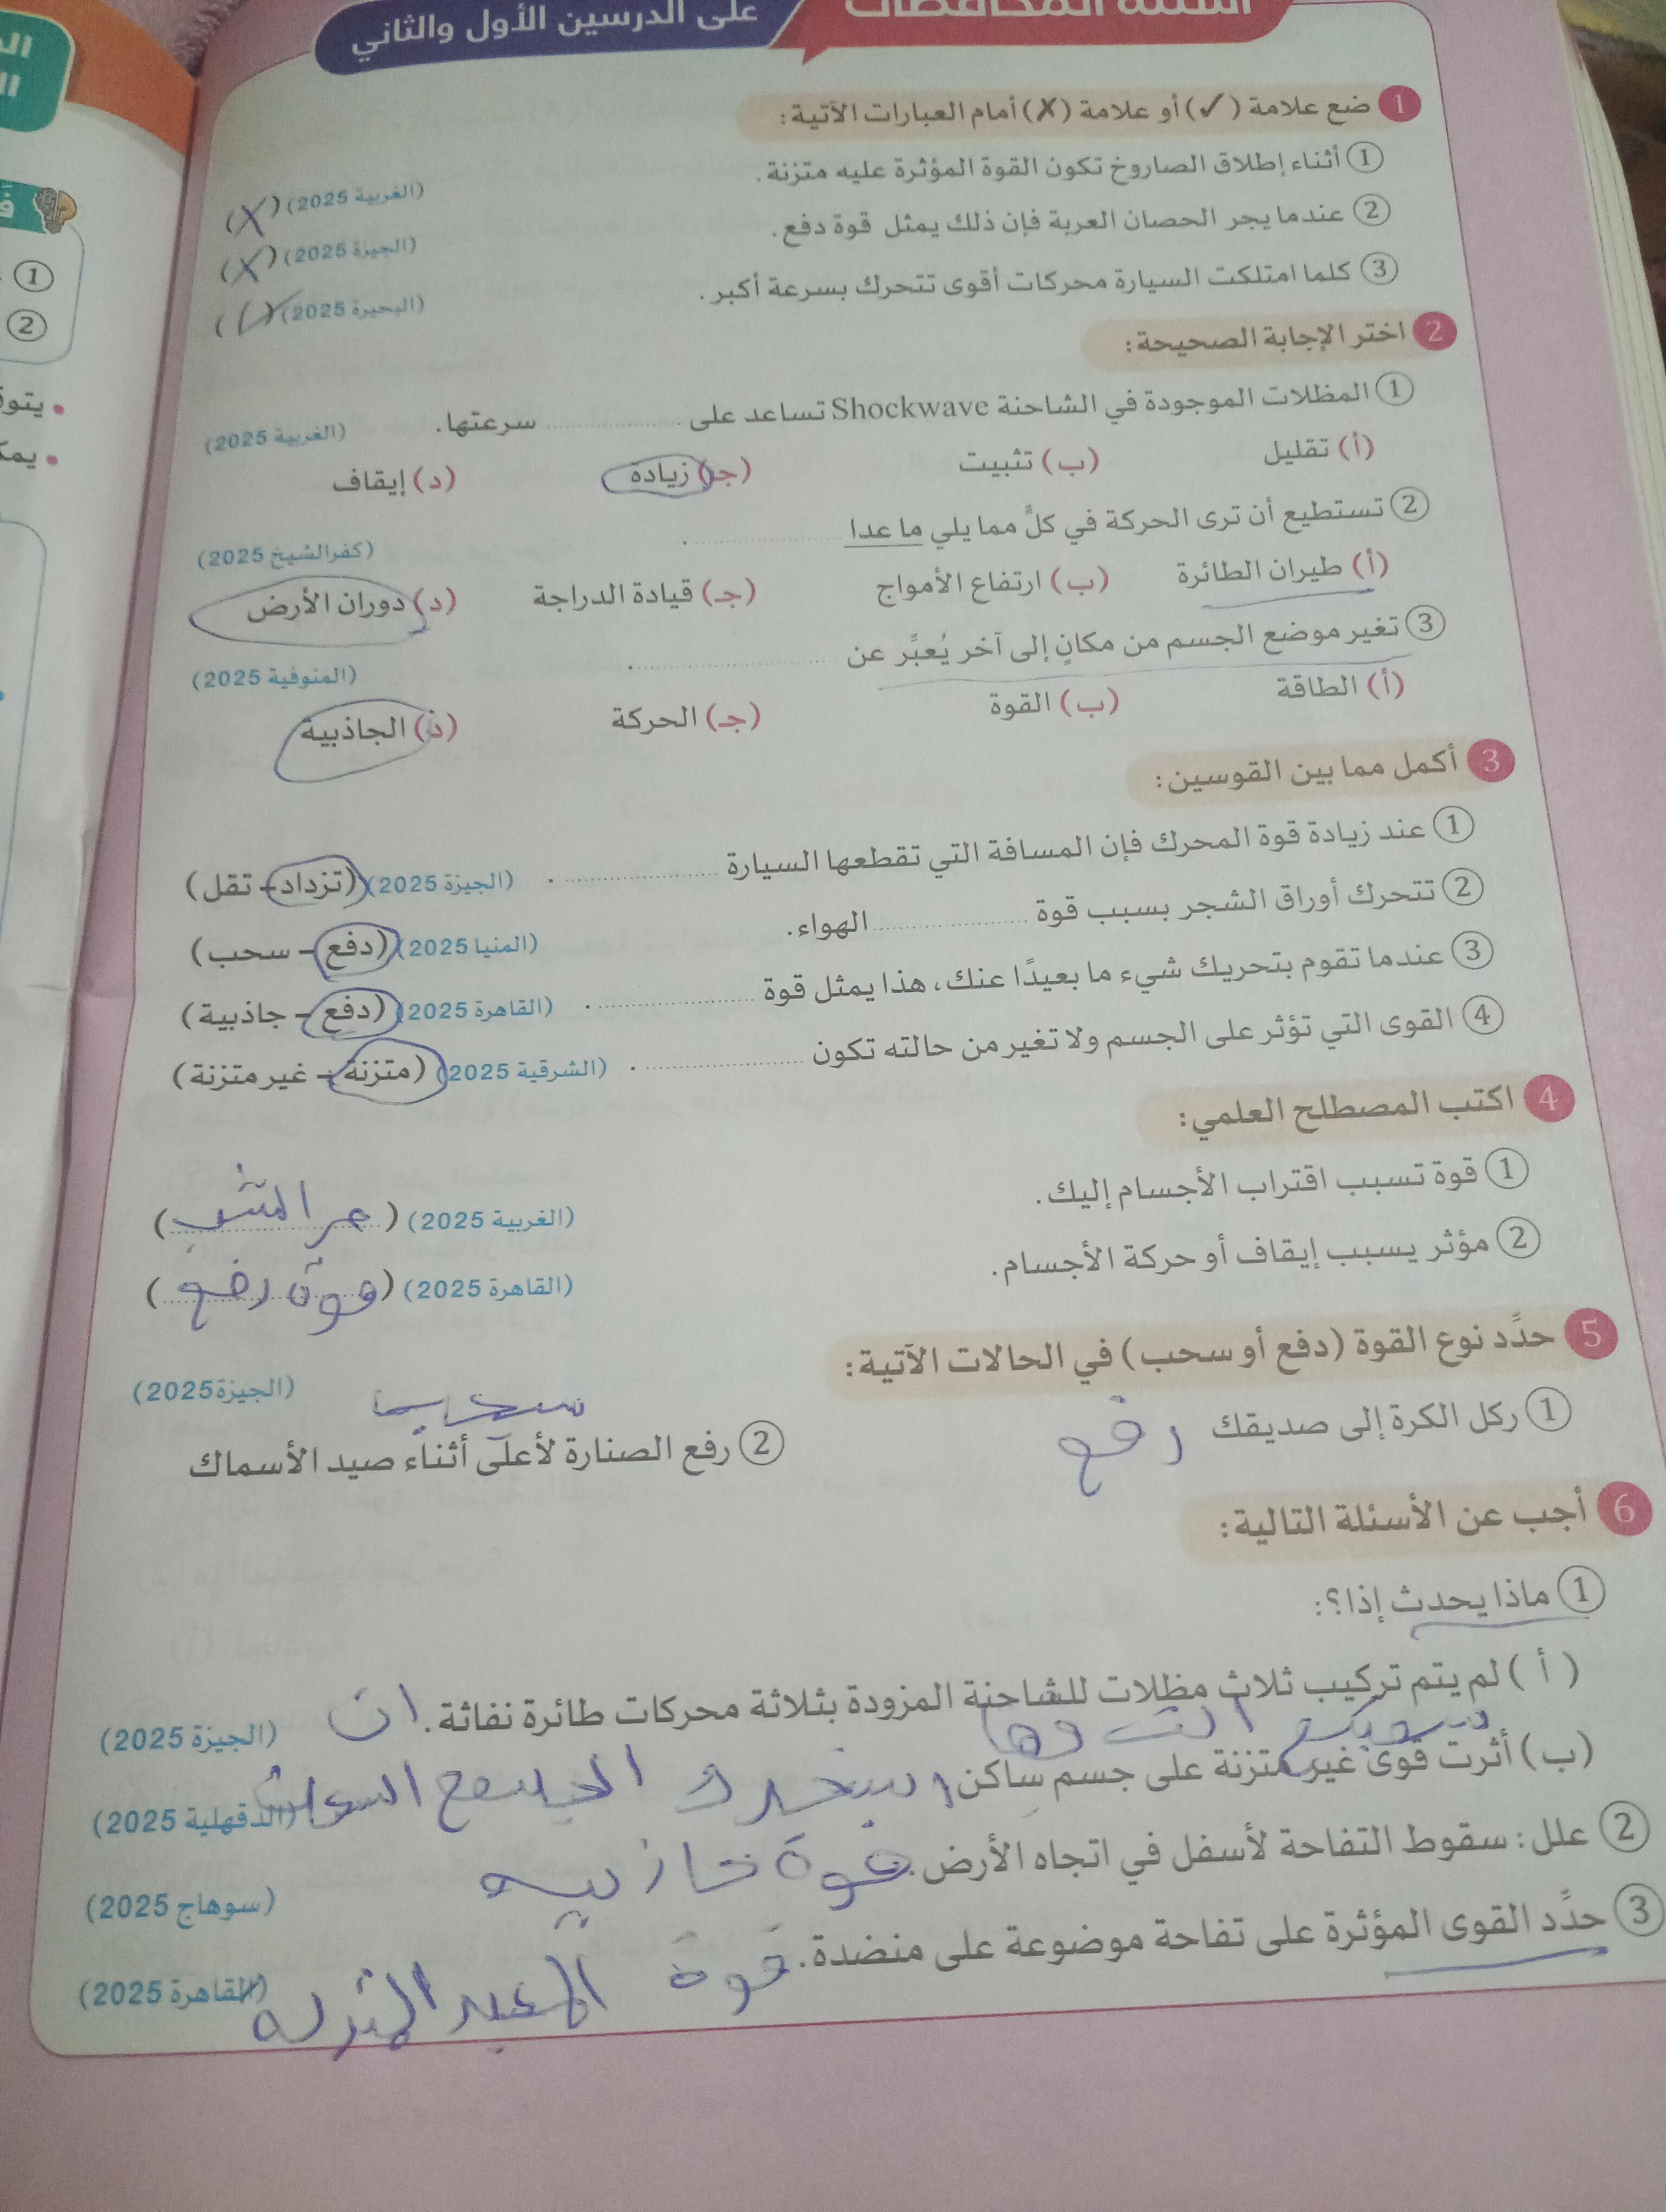 أسئلة المحافظات على الدرسين الأول والثاني
1 ضع علامة (✓) أو علامة (✗) أمام العبارات الآتية:
① أثناء إطلاق الصاروخ تكون القوة المؤثرة عليه متزنة. (الغربية 2025) (X)
② عندما يجر الحصان العربة فإن ذلك يمثل قوة دفع. (الجيزة 2025) (X)
③ كلما امتلكت السيارة محركات أقوى تتحرك بسرعة أكبر. (البحيرة 2025) (✓)
2 اختر الإجابة الصحيحة:
① المظلات الموجودة في الشاحنة Shockwave تساعد على ............ سرعتها. (الغربية 2025)
(أ) تقليل (ب) تثبيت (جـ) زيادة (د) إيقاف
② تستطيع أن ترى الحركة في كلٍّ مما يلي ما عدا ............ . (كفر الشيخ 2025)
(أ) طيران الطائرة (ب) ارتفاع الأمواج (جـ) قيادة الدراجة (د) دوران الأرض
③ تغير موضع الجسم من مكانٍ إلى آخر يُعبِّر عن ............ . (المنوفية 2025)
(أ) الطاقة (ب) القوة (جـ) الحركة (د) الجاذبية
3 أكمل مما بين القوسين:
① عند زيادة قوة المحرك فإن المسافة التي تقطعها السيارة ............ . (الجيزة 2025) (تزداد - تقل)
② تتحرك أوراق الشجر بسبب قوة ............ الهواء. (المنيا 2025) (دفع - سحب)
③ عندما تقوم بتحريك شيء ما بعيدًا عنك، هذا يمثل قوة ............ . (القاهرة 2025) (دفع - جاذبية)
④ القوى التي تؤثر على الجسم ولا تغير من حالته تكون ............ . (الشرقية 2025) (متزنة - غير متزنة)
4 اكتب المصطلح العلمي:
① قوة تسبب اقتراب الأجسام إليك. (الغربية 2025)
② مؤثر يسبب إيقاف أو حركة الأجسام. (القاهرة 2025) (قوة دفع)
5 حدِّد نوع القوة (دفع أو سحب) في الحالات الآتية: (الجيزة 2025)
① ركل الكرة إلى صديقك دفع ② رفع الصنارة لأعلى أثناء صيد الأسماك
6 أجب عن الأسئلة التالية:
① ماذا يحدث إذا؟:
(أ) لم يتم تركيب ثلاث مظلات للشاحنة المزودة بثلاثة محركات طائرة نفاثة. (الجيزة 2025)
(ب) أثرت قوى غير متزنة على جسم ساكن. (الدقهلية 2025)
② علل: سقوط التفاحة لأسفل في اتجاه الأرض. قوة (سوهاج 2025)
③ حدِّد القوى المؤثرة على تفاحة موضوعة على منضدة. قوة (القاهرة 2025)
①
②